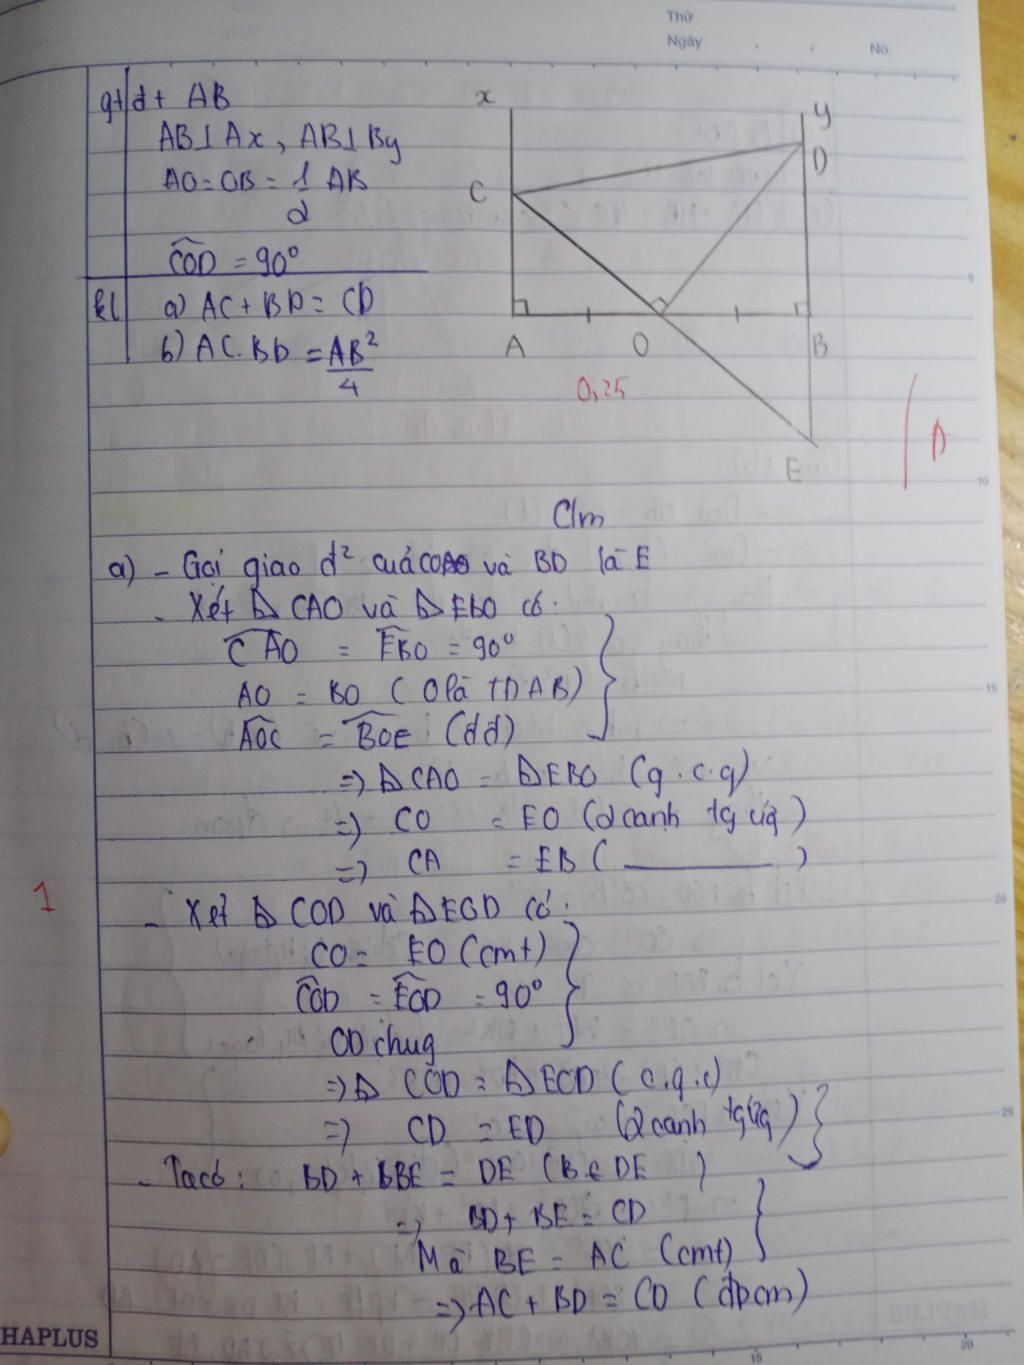 Thứ
Ngày
No.
gt đt AB
AB⊥Ax, AB⊥By
AO=OB=1/2 AB
COD = 90°
kl a) AC+BD = CD
b) AC.BD = AB²/4
x
y
C
D
A
O
B
E
0,25
C/m
a) - Gọi giao đ² của CO và BD là E
- Xét Δ CAO và Δ EBO có:
CAO = EBO = 90°
AO = BO ( O là TĐ AB)
AOC = BOE (đđ)
=> Δ CAO = Δ EBO (g.c.g)
=> CO = EO (2 cạnh tg ứg)
=> CA = EB ( ——— )
1
- Xét Δ COD và Δ EOD có:
CO = EO (cmt)
COD = EOD = 90°
OD chug
=> Δ COD = Δ EOD (c.g.c)
=> CD = ED (2 cạnh tg ứg)
- Ta có: BD + BE = DE (B ∈ DE )
=> BD + BE = CD
Mà BE = AC (cmt)
=> AC + BD = CD (đpcm)
HAPLUS
5
10
15
20
25
15
20